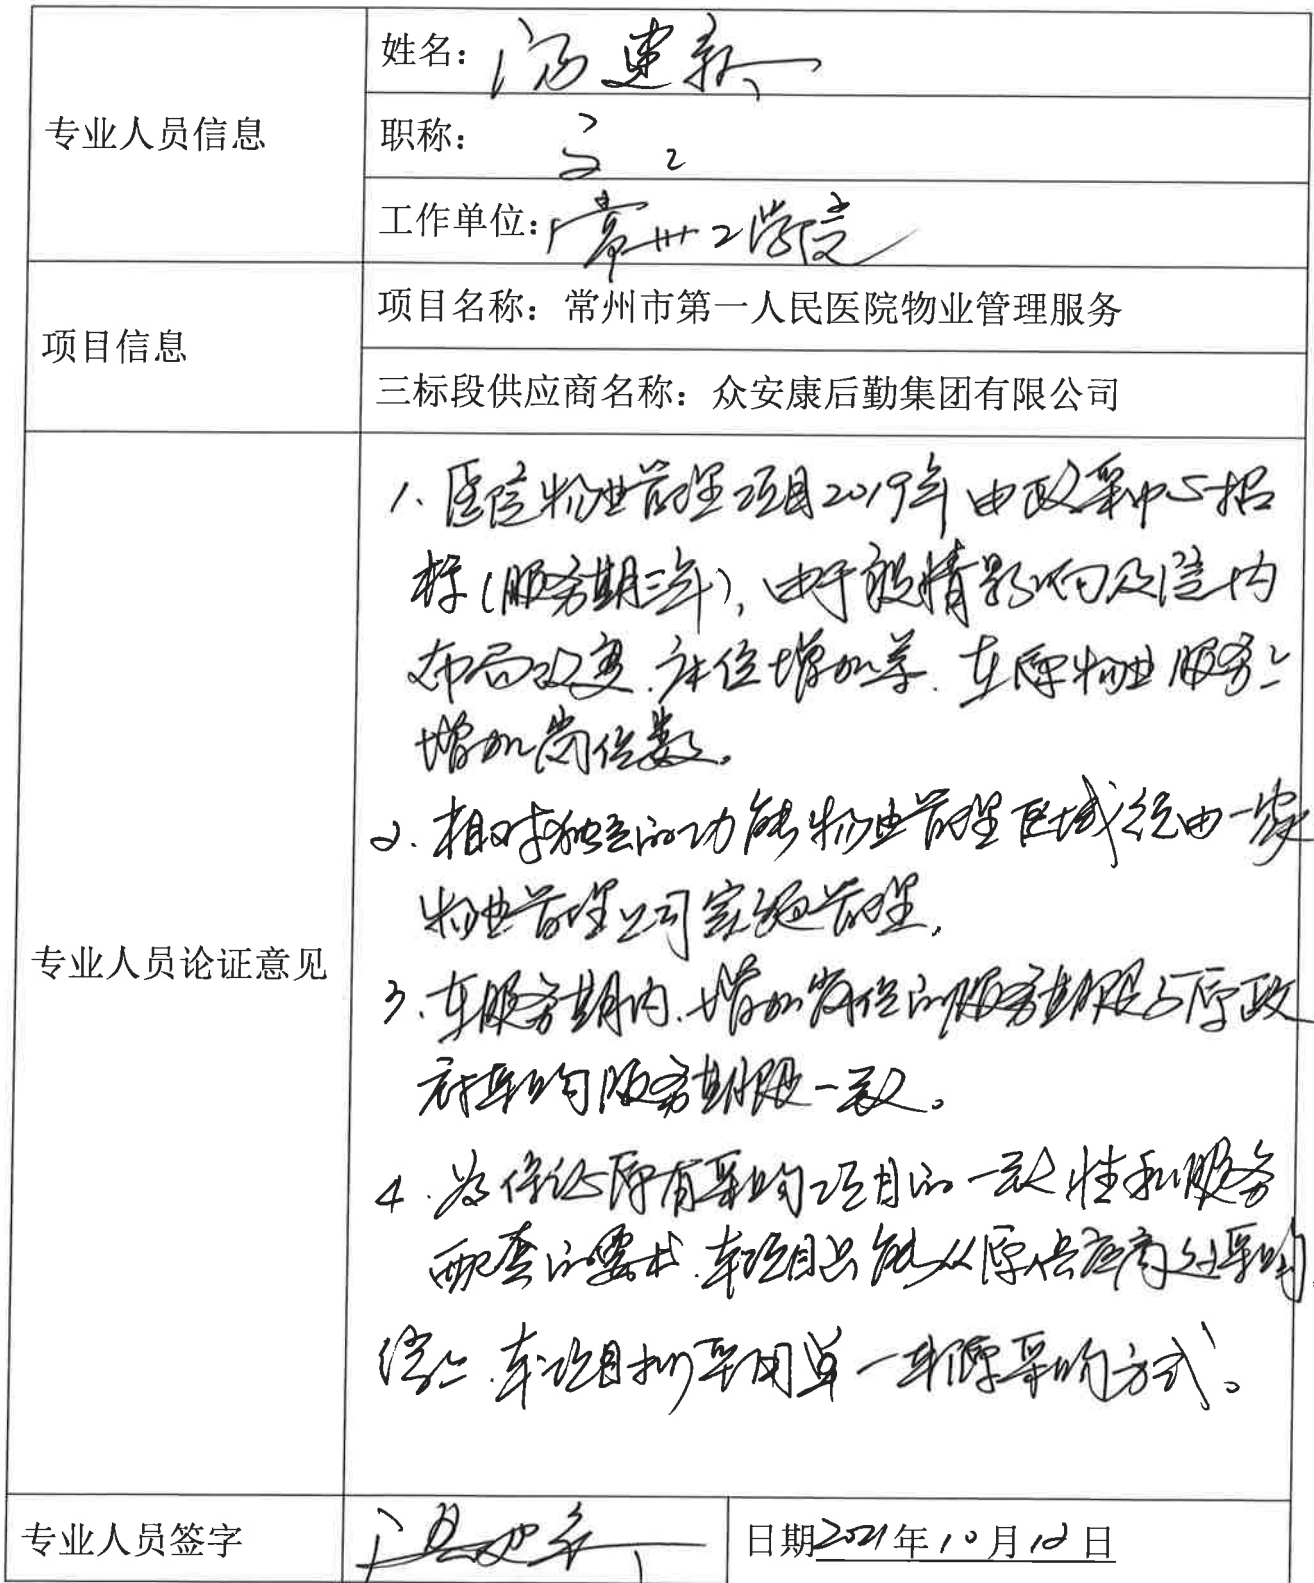 专业人员信息
姓名：汤建新
职称：高工
工作单位：常州工学院
项目信息
项目名称：常州市第一人民医院物业管理服务
三标段供应商名称：众安康后勤集团有限公司
专业人员论证意见
1. 医院物业管理项目2019年由政采中心招
标（服务期三年），由于疫情影响及院内
布局改变、床位增加等、在原物业服务上
增加岗位数。
2. 相对独立的功能物业管理区域统由一家
物业管理公司实施管理。
3. 在服务期内、增加岗位的服务期限与原政
府采购服务期限一致。
4. 为保证原有采购项目的一致性和服务
配套的要求、本项目只能从原供应商处采购，
综上、本项目拟采用单一来源采购方式。
专业人员签字
日期2021年10月12日